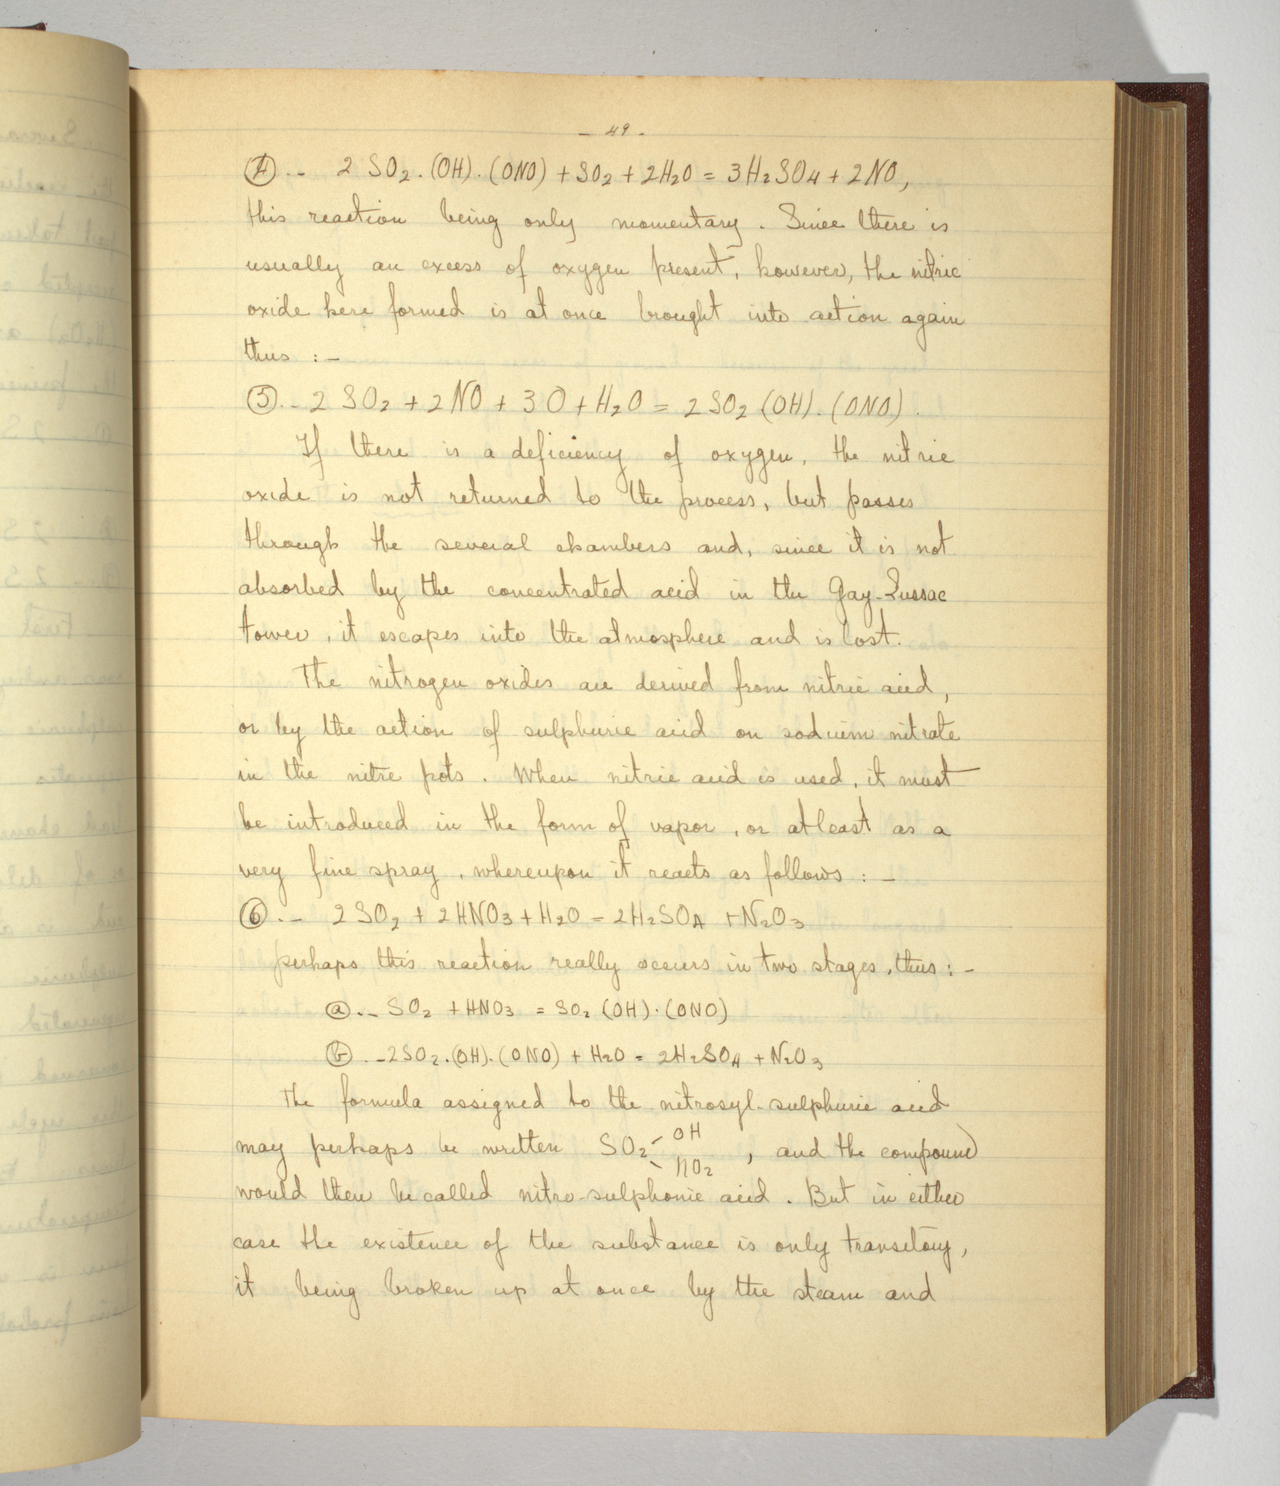 - 49 -
④.- 2 SO₂.(OH).(ONO) + SO₂ + 2H₂O = 3H₂SO₄ + 2NO,
this reaction being only momentary. Since there is
usually an excess of oxygen present, however, the nitric
oxide here formed is at once brought into action again
thus :-
⑤.- 2 SO₂ + 2NO + 3O + H₂O = 2SO₂ (OH).(ONO).
If there is a deficiency of oxygen, the nitric
oxide is not returned to the process, but passes
through the several chambers and, since it is not
absorbed by the concentrated acid in the Gay-Lussac
tower, it escapes into the atmosphere and is lost.
The nitrogen oxides are derived from nitric acid,
or by the action of sulphuric acid on sodium nitrate
in the nitre pots. When nitric acid is used, it must
be introduced in the form of vapor, or at least as a
very fine spray, whereupon it reacts as follows :-
⑥.- 2SO₂ + 2HNO₃ + H₂O = 2H₂SO₄ + N₂O₃
perhaps this reaction really occurs in two stages, thus :-
ⓐ.- SO₂ + HNO₃ = SO₂ (OH).(ONO)
ⓑ.- 2SO₂.(OH).(ONO) + H₂O = 2H₂SO₄ + N₂O₃
The formula assigned to the nitrosyl-sulphuric acid
may perhaps be written SO₂< OH NO₂ , and the compound
would then be called nitro-sulphonic acid. But in either
case the existence of the substance is only transitory,
it being broken up at once by the steam and